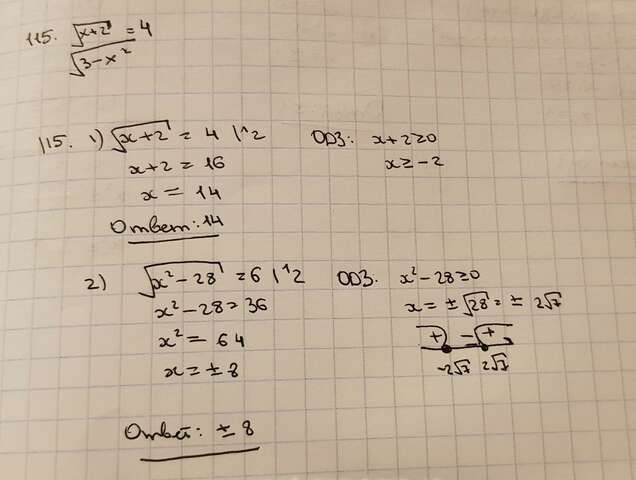 115. √(x+2) = 4
√(3-x²)
115. 1) √(x+2) = 4 |^2 ОДЗ: x+2≥0
x+2 = 16 x≥-2
x = 14
Ответ: 14
2) √(x²-28) = 6 |^2 ОДЗ. x²-28≥0
x²-28=36 x=±√28=±2√7
x²=64 + - +
x=±8 -2√7 2√7
Ответ: ±8